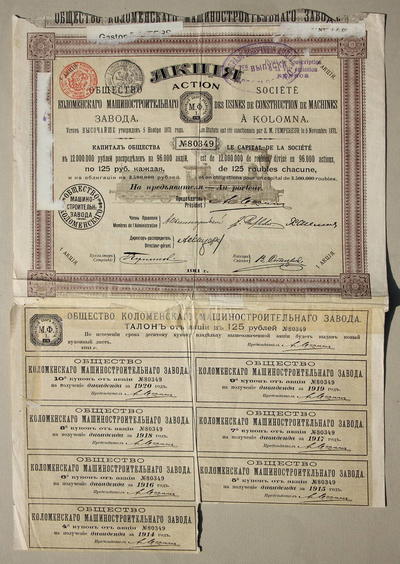 ОБЩЕСТВО КОЛОМЕНСКАГО МАШИНОСТРОИТЕЛЬНАГО ЗАВОДА.
АКЦІЯ
ACTION
ОБЩЕСТВО
КОЛОМЕНСКАГО МАШИНОСТРОИТЕЛЬНАГО
ЗАВОДА.
Уставъ ВЫСОЧАЙШЕ утвержденъ 5 Ноября 1871 года.
SOCIÉTÉ
DES USINES DE CONSTRUCTION DE MACHINES
À KOLOMNA.
Les Statuts ont été sanctionnés par S. M. l'EMPEREUR le 5 Novembre 1871.
№80349
КАПИТАЛЪ ОБЩЕСТВА
въ 12.000.000 рублей распредѣленъ на 96.000 акцій,
по 125 руб. каждая,
и на облигаціи на 2.500.000 рублей.
LE CAPITAL DE LA SOCIÉTÉ
est de 12.000.000 de roubles divisé en 96.000 actions,
de 125 roubles chacune,
et en obligations pour un capital de 2.500.000 roubles.
На предъявителя
Au porteur.
Предсѣдатель
Président
Члены Правленія
Membres de l'Administration
Директоръ-распорядитель
Directeur-gérant
Бухгалтеръ
Comptable
Кассиръ
Caissier
ОБЩЕСТВО
МАШИНО-
СТРОИТЕЛЬН.
ЗАВОДА
КОЛОМЕНСКАГО
1 АКЦІЯ
1 АКЦІЯ
1911 г.
М.Ф.
ОБЩЕСТВО КОЛОМЕНСКАГО МАШИНОСТРОИТЕЛЬНАГО ЗАВОДА.
ТАЛОНЪ отъ акціи въ 125 рублей №80349
По истеченіи срока десятому купону владѣльцу вышеозначенной акціи будетъ выданъ новый
купонный листъ.
1911 г.
Предсѣдатель
ОБЩЕСТВО
КОЛОМЕНСКАГО МАШИНОСТРОИТЕЛЬНАГО ЗАВОДА.
10й купонъ отъ акціи №80349
на полученіе дивиденда за 1920 годъ.
Предсѣдатель
ОБЩЕСТВО
КОЛОМЕНСКАГО МАШИНОСТРОИТЕЛЬНАГО ЗАВОДА.
9й купонъ отъ акціи №80349
на полученіе дивиденда за 1919 годъ.
Предсѣдатель
ОБЩЕСТВО
КОЛОМЕНСКАГО МАШИНОСТРОИТЕЛЬНАГО ЗАВОДА.
8й купонъ отъ акціи №80349
на полученіе дивиденда за 1918 годъ.
Предсѣдатель
ОБЩЕСТВО
КОЛОМЕНСКАГО МАШИНОСТРОИТЕЛЬНАГО ЗАВОДА.
7й купонъ отъ акціи №80349
на полученіе дивиденда за 1917 годъ.
Предсѣдатель
ОБЩЕСТВО
КОЛОМЕНСКАГО МАШИНОСТРОИТЕЛЬНАГО ЗАВОДА.
6й купонъ отъ акціи №80349
на полученіе дивиденда за 1916 годъ.
Предсѣдатель
ОБЩЕСТВО
КОЛОМЕНСКАГО МАШИНОСТРОИТЕЛЬНАГО ЗАВОДА.
5й купонъ отъ акціи №80349
на полученіе дивиденда за 1915 годъ.
Предсѣдатель
ОБЩЕСТВО
КОЛОМЕНСКАГО МАШИНОСТРОИТЕЛЬНАГО ЗАВОДА.
4й купонъ отъ акціи №80349
на полученіе дивиденда за 1914 годъ.
Предсѣдатель